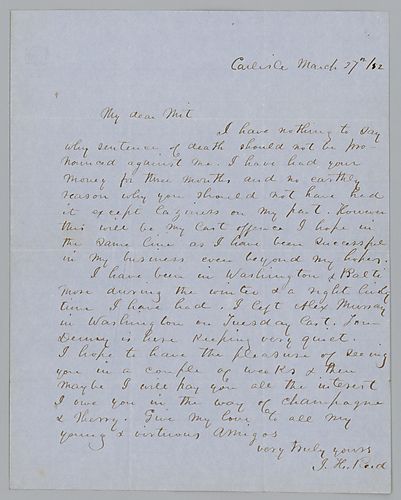 Carlisle March 27th/52
My dear Mit
I have nothing to say
why sentence of death should not be pro
nounced against me. I have had your
money for three months and no earthly
reason why you should not have had
it except laziness on my part. However
this will be my last offence I hope in
the same line as I have been successful
in my business even beyond my hopes.
I have been in Washington & Balti
more during the winter & a right lively
time I have had. I left Alex Murray
in Washington on Tuesday last. Tom
is here keeping very quiet.
I hope to have the pleasure of seeing
you in a couple of weeks & then
maybe I will pay you all the interest
I owe you in the way of champagne
& Sherry. Give my love to all my
young & virtuous Amigos
very truly yours
J. H. Reed